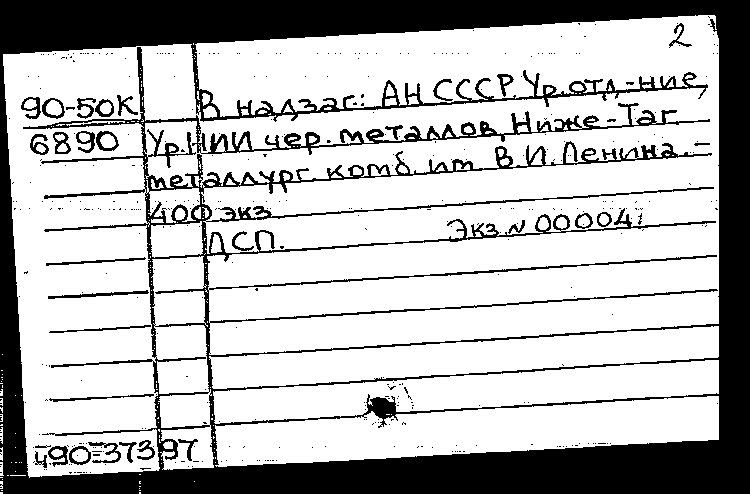 2
90-50К В надзаг.: АН СССР. Ур. отд-ние,
6890 Ур. НИИ чер. металлов, Ниже-Таг.
металлург. комб. им. В.И. Ленина.-
400 экз
ДСП. Экз. N 000041
490-37397